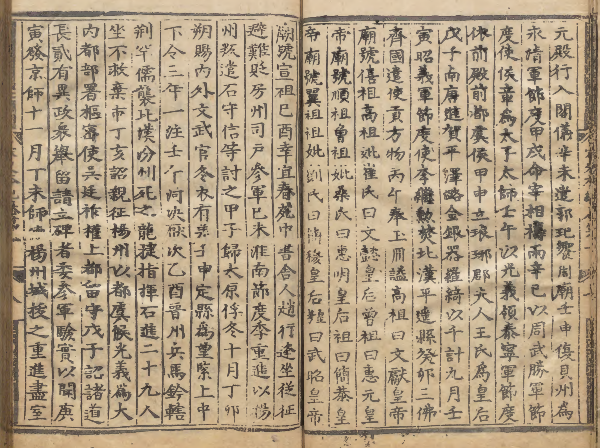 元殿行入閣儀辛未遣郭玘饗周廟壬申復貝州為
永清軍節度甲戌命宰相禱雨辛巳以周武勝軍節
度使侯章為太子太師壬午以光義領泰寧軍節度
依前殿前都虞侯甲申立琅琊郡夫人王氏為皇后
戊子南唐進賀平澤潞金銀器羅綺以千計九月壬
寅昭義軍節度使李繼勳焚北漢平遙縣癸卯三佛
齊國遣使貢方物丙午奉玉冊謚高祖曰文獻皇帝
廟號僖祖高祖妣崔氏曰文懿皇后曾祖曰惠元皇
帝廟號順祖曾祖妣桑氏曰惠明皇后祖曰簡恭皇
帝廟號翼祖祖妣劉氏曰簡穆皇后曰武昭皇帝
廟號宣祖己酉幸宜春苑中書舍人趙行逢坐從征
避難貶房州司戶參軍己未淮南節度李重進以揚
州叛遣石守信等討之甲子歸太原俘冬十月丁卯
朔賜內外文武官冬衣有差壬申定縣為望緊上中
下令三年一注壬午河決厭次乙酉晉州兵馬鈐轄
荊罕儒襲北漢汾州死之龍捷指揮石進二十九人
坐不救棄市丁亥詔親征揚州以都虞候光義為大
內都部署樞密使吳廷祚權上都留守戊子詔諸道
長貳有異政眾舉留請立碑者委參軍驗實以聞庚
寅發京師十一月丁未師傅揚州城拔之重進盡室